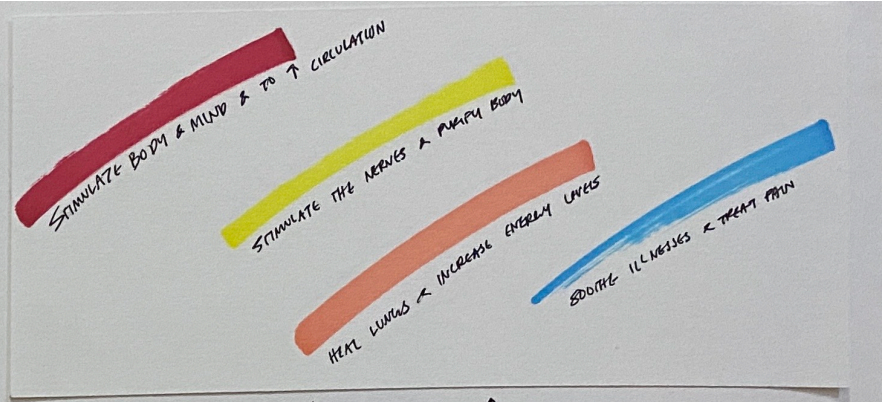 STIMULATE BODY & MIND & TO ↑ CIRCULATION
STIMULATE THE NERVES & PURIFY BODY
HEAL LUNGS & INCREASE ENERGY LEVELS
SOOTHE ILLNESSES & TREAT PAIN